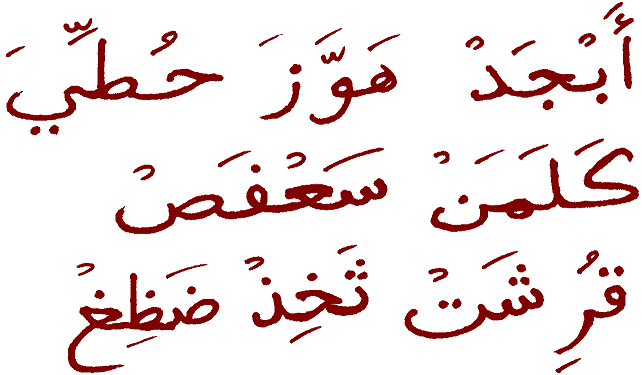 أَبْجَدْ هَوَّزَ حُطِّيَ
كَلَمَنْ سَعْفَصْ
قُرِشَتْ ثَخِذْ ضَظِغْ